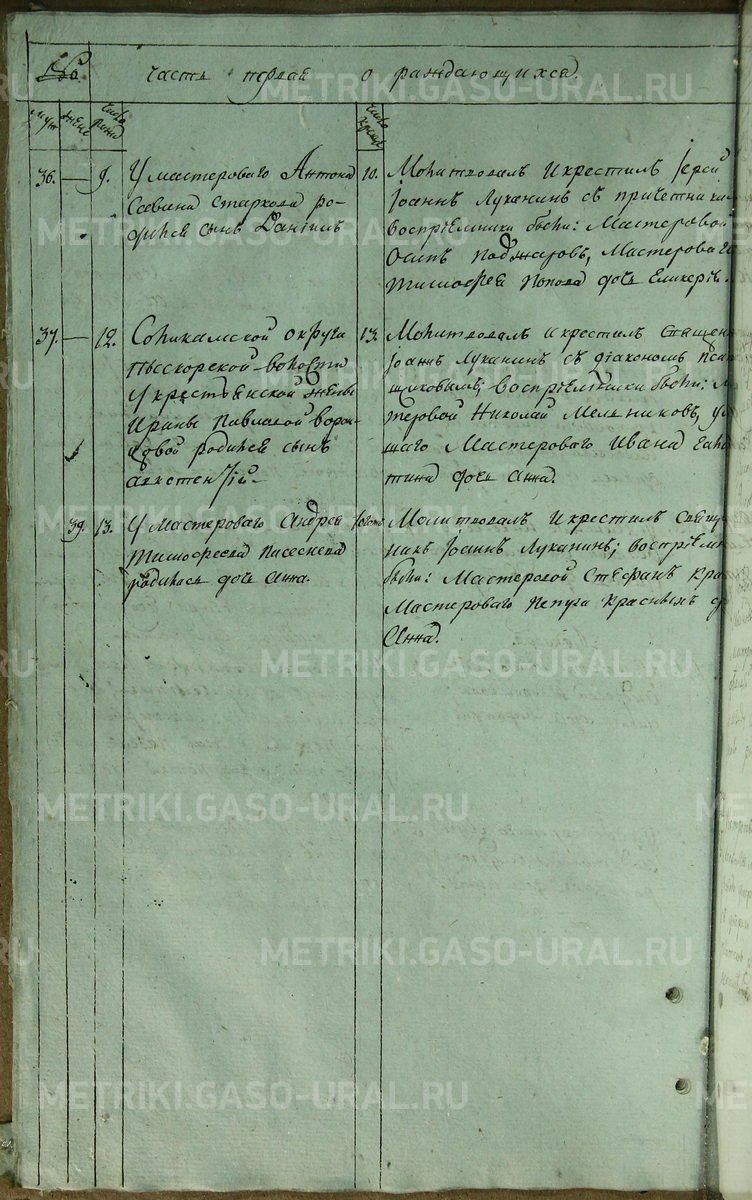 часть первая о раждающихся.
муж женс число рожд число крещ
36. — 9. У мастероваго Антона
Савина Старкова ро-
дился сынъ Данiилъ
10. Молитвовалъ и крестилъ Iерей
Iоаннъ Луканинъ съ причетники
Воспрiемники были: Мастеровой
Осипъ Поджаровъ, Мастероваго
Тимофея Попова дочь Гликерiя.
37. — 12. Соликамской округи
Пыскорской волости
У крестьянской женки
Ирины Павловой Ворон-
цовой родился сынъ
13. Молитвовалъ и крестилъ Священ
Iоаннъ Луканинъ съ дiакономъ
Воспрiемники были:
теровой Николай Мельниковъ,
щаго Мастероваго Ивана
тина дочь Анна.
39. 13. У Мастероваго Андрея
Тимофеева
родилась дочь Анна.
Молитвовалъ и крестилъ Свящ
никъ Iоаннъ Луканинъ; воспрiем
были: Мастеровой Стефанъ Кра
Мастероваго Петра Красныхъ
Анна.
METRIKI.GASO-URAL.RU